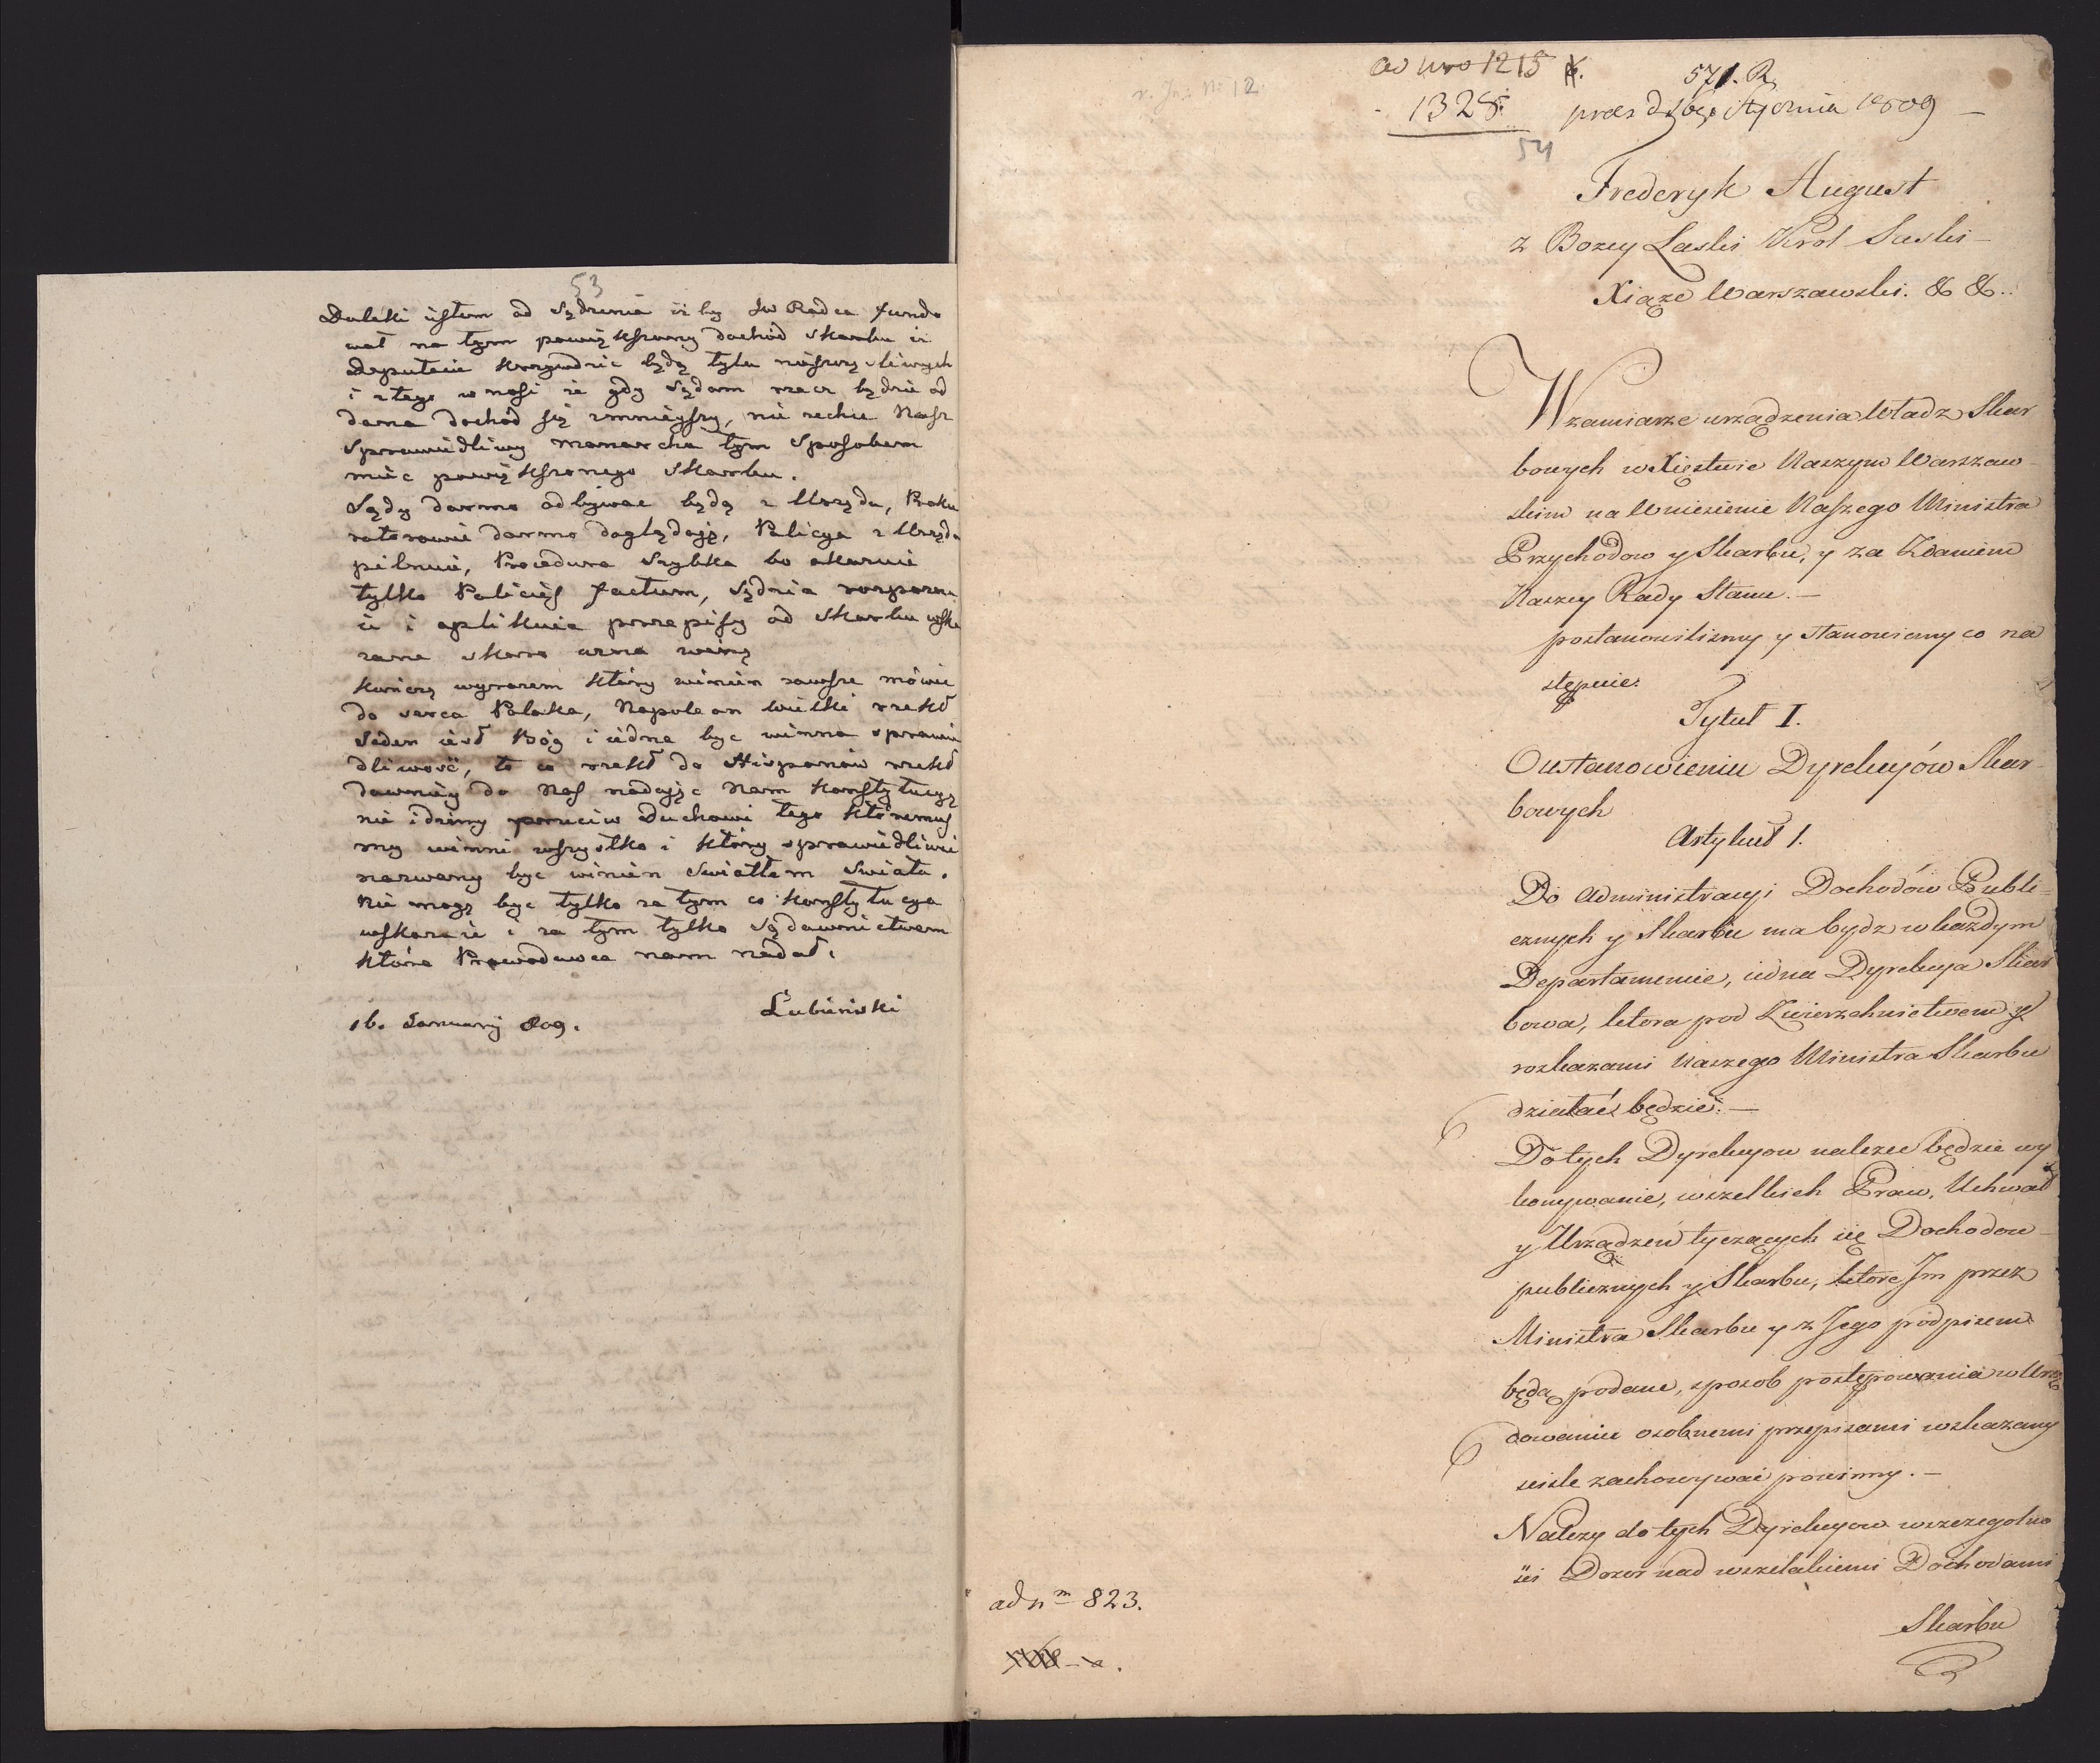 53
Daleki istem od sądzenia iż by JW Radca fundo
wał na tym powiększony dochód skarbu iż
deputacie krzywdzić będą tylu nieszczęśliwych
i z tego wnosi że gdy sądom rzecz będzie od
dana dochód się zmnieyszy, nie zechce Nasz
sprawiedliwy monarcha tym sposobem
mieć powiększonego skarbu.
Sądy darmo odbywać będą z Urzędu, Proku
ratorowie darmo doglądają, Policya z Urzędu
pilnuie, Procedura szybka bo
tylko Policies factum, sędzia rozpozna
ie i aplikuie przepisy od skarbu wska
zane skoro uzna winę
kończę wyrazem który winien zawsze mówić
do serca Polaka, Napoleon wielki rzekł
Jeden iest Bóg i iedna być winna sprawie
dliwość, to co rzekł do Hiszpanów rzekł
dawniey do Nas nadaiąc Nam Konstytucyą
nie idźmy przeciw Duchowi tego któremuś
my winni wszystko i który sprawiedliwie
nazwany być winien Swiatłem Swiata.
Nie mogę być tylko za tym co Konstytucya
wskazuie i za tym tylko sądownictwem
które Prawodawca nam nadał.
Łubieński
16. January 809.
ad nro 1215
1328.
571. R
Stycznia 1809
54
Frederyk August
z Bozey Laski Krol Saski
Xiąze Warszawski. & &.
W zamiarze urządzenia Wladz Skar
bowych w Xięstwie Naszym Warszaw
skim na Wniesienie Naszego Ministra
Przychodow y Skarbu, y za Zdaniem
Naszey Rady Stanu.—
postanowilismy y stanowiemy co na
stępuie:
Tytuł I.
O ustanowieniu Dyrekcyów Skar
bowych
Artykuł 1.
Do Administracyi Dochodów Publi=
cznych y Skarbu ma bydz w każdym
Departamencie, iedna Dyrekcya Skar
bowa, ktora pod Zwierzchnictwem y
rozkazami Naszego Ministra Skarbu
działać będzie.—
Do tych Dyrekcyow nalezec będzie wy
konywanie, wszelkich Praw, Uchwał
y Urządzeń tyczących się Dochodow
publicznych y Skarbu, ktore Im przez
Ministra Skarbu y z Jego podpisem
będą podane, sposob postępowania w Urzę
dowaniu osobnemi przepisami wskazany
scisle zachowywać powinny.—
Nalezy do tych Dyrekcyow wszczegolno
sci Dozor nad wszelakiemi Dochodami
Skarbu
ad nm 823.